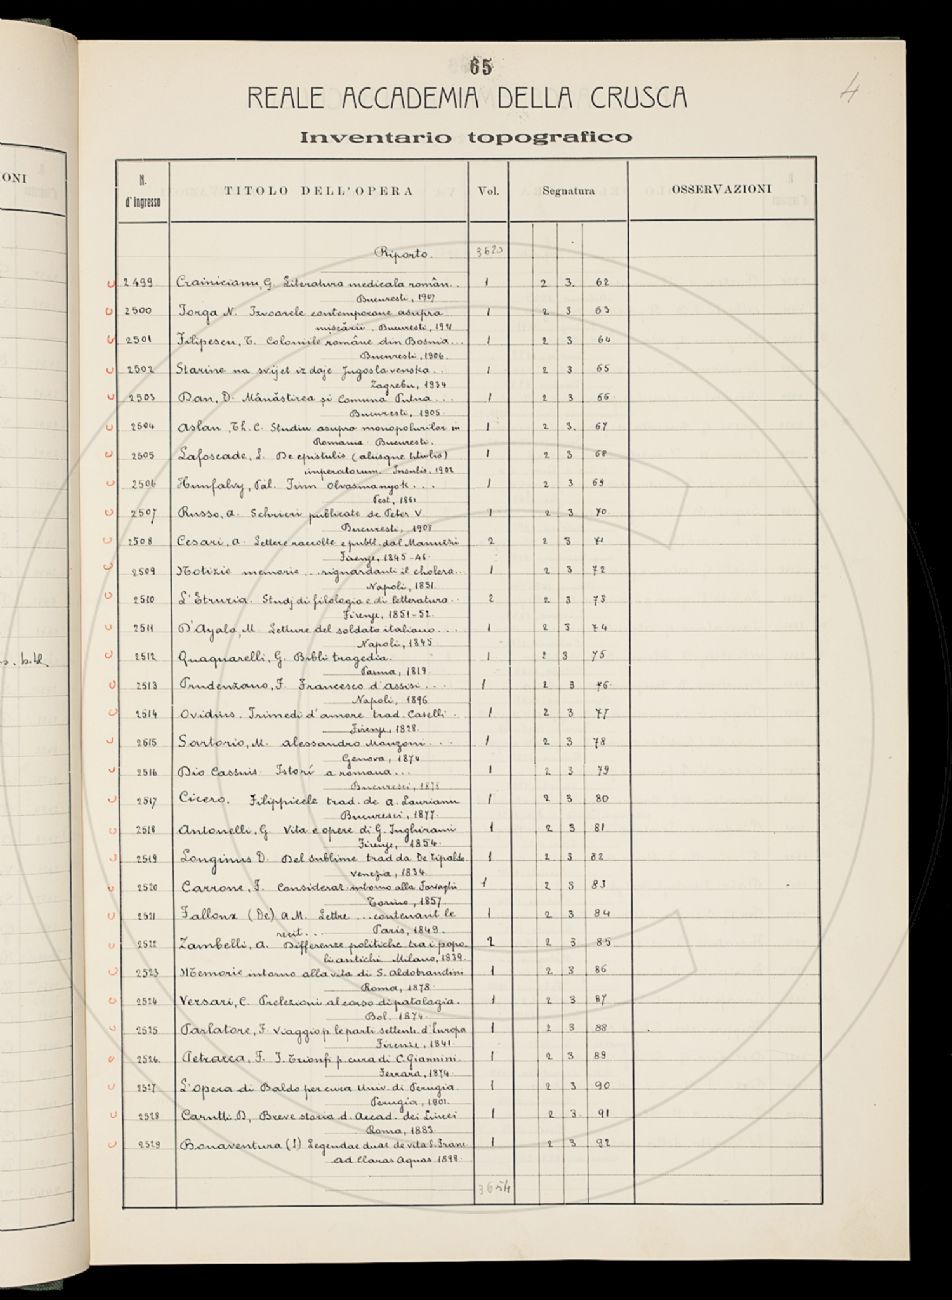 65
4
REALE ACCADEMIA DELLA CRUSCA
Inventario topografico
ONI
N. d'Ingresso TITOLO DELL'OPERA Vol. Segnatura OSSERVAZIONI
Riporto. 3620
2499 Crainicianu, G. Literatura medicala român.. 1 2 3. 62
Bucuresti, 1907
2500 Iorga N. Izvoarele contemporane asupra 1 2 3 63
mişcării. Bucuresti, 1921
2501 Filipescu, T. Coloniile române din Bosnia... 1 2 3 64
Bucuresti, 1906.
2502 Starine na svijet izdaje Jugoslavenska.. 1 2 3 65
Zagrebu, 1934
2503 Dan, D. Mânăstirea şi Comuna Putna... 1 2 3 66
Bucuresti, 1905.
2504 Aslan, Th. C. Studiu asupra monopolurilor in 1 2 3. 67
Romania. Bucuresti.
2505 Lafoscade, L. De epistulis (aliisque titulis) 1 2 3 68
imperatorum. Insulis, 1902
2506 Hunfalvy, Pál. Finn olvasmanyok... 1 2 3 69
Pest, 1861
2507 Russo, A. Scrieri publicate de Peter V. 1 2 3 70
Bucuresti, 1908
2508 Cesari, A. Lettere raccolte e pubbl. dal Manuzzi 2 2 3 71
Firenze, 1845-46.
2509 Notizie memorie... riguardanti il cholera.. 1 2 3 72
Napoli, 1851.
2510 L'Etruria. Studj di filologia e di letteratura.. 2 2 3 73
Firenze, 1851-52.
2511 D'Ayala, M. Letture del soldato italiano... 1 2 3 74
Napoli, 1845
s. b.ta
2512 Quaquarelli, G. Bibli tragedia. 1 2 3 75
Parma, 1819.
2513 Prudenzano, F. Francesco d'Assisi... 1 2 3 76.
Napoli, 1896
2514 Ovidius. I rimedi d'amore trad. Caselli. 1 2 3 77
Firenze, 1828.
2515 Sartorio, M. Alessandro Manzoni... 1 2 3 78
Genova, 1874
2516 Dio Cassius Istorí a romana... 1 2 3 79
Bucuresci, 1878
2517 Cicero. Filippicele trad. de A. Laurianu 1 2 3 80
Bucuresci, 1877.
2518 Antonelli, G Vita e opere di G. Inghirami 1 2 3 81
Firenze, 1854.
2519 Longinus D. Del sublime trad da De Tipaldo. 1 2 3 82
Venezia, 1834.
2520 Carrone, F. Considerar. intorno alla Farsaglia 1 2 3 83
Torino, 1857.
2521 Falloux (De) A M. Lettre... contenant le 1 2 3 84
récit... Paris, 1849.
2522 Zambelli, A. Differenze politiche tra i popo= 2 2 3 85
li antichi Milano, 1839.
2523 Memorie intorno alla vita di S. Aldobrandini 1 2 3 86
Roma, 1878.
2524 Versari, C. Prelezioni al corso di patologia. 1 2 3 87
Bol. 1874.
2525 Parlatore, F. Viaggio p. le parti settentr. d'Europa 1 2 3 88
Firenze, 1841.
2526. Petrarca, F. I. Trionfi p. cura di C. Giannini. 1 2 3 89
Ferrara, 1874.
2527 L'Opera di Baldo per cura Univ. di Perugia. 1 2 3 90
Perugia, 1901.
2528 Carutti D, Breve storia d. Accad. dei Lincei 1 2 3. 91
Roma, 1883.
2529 Bonaventura (S) Legendae duae de vita S. Franc. 1 2 3 92
ad Claras Aquas 1898.
3654